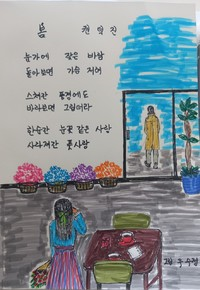 봄
눈가에 작은 바람
돌아보면 가슴 저어
스쳐간 풍경에도
바라보면 그립더라
한순간 눈꽃 같은 사랑
사라져간 봄사랑